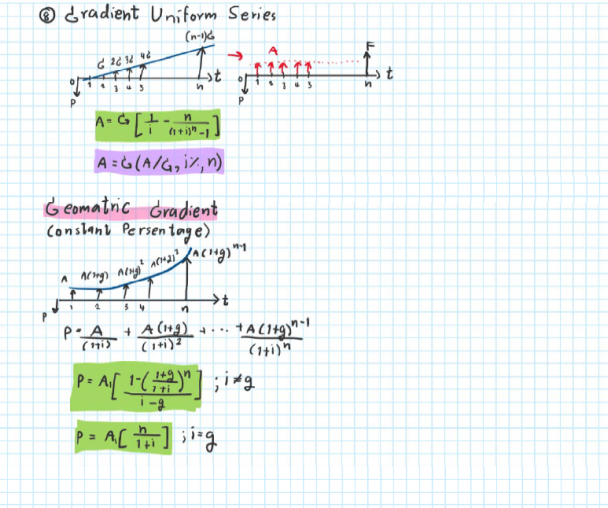 ⑧ Gradient Uniform Series
(n-1)G
G 2G 3G 4G
0 1 2 3 4 5 n t
P
A F
0 1 2 3 4 5 n t
P
A = G [ 1/i - n/((1+i)^n - 1) ]
A = G (A/G, i%, n)
Geomatric Gradient
(constant Persentage)
A A(1+g) A(1+g)^2 A(1+g)^3 A(1+g)^n-1
1 2 3 4 n t
P
P = A/(1+i) + A(1+g)/(1+i)^2 + ... + A(1+g)^n-1/(1+i)^n
P = A₁[ (1-((1+g)/(1+i))^n)/(i-g) ] ; i≠g
P = A₁[ n/(1+i) ] ; i=g